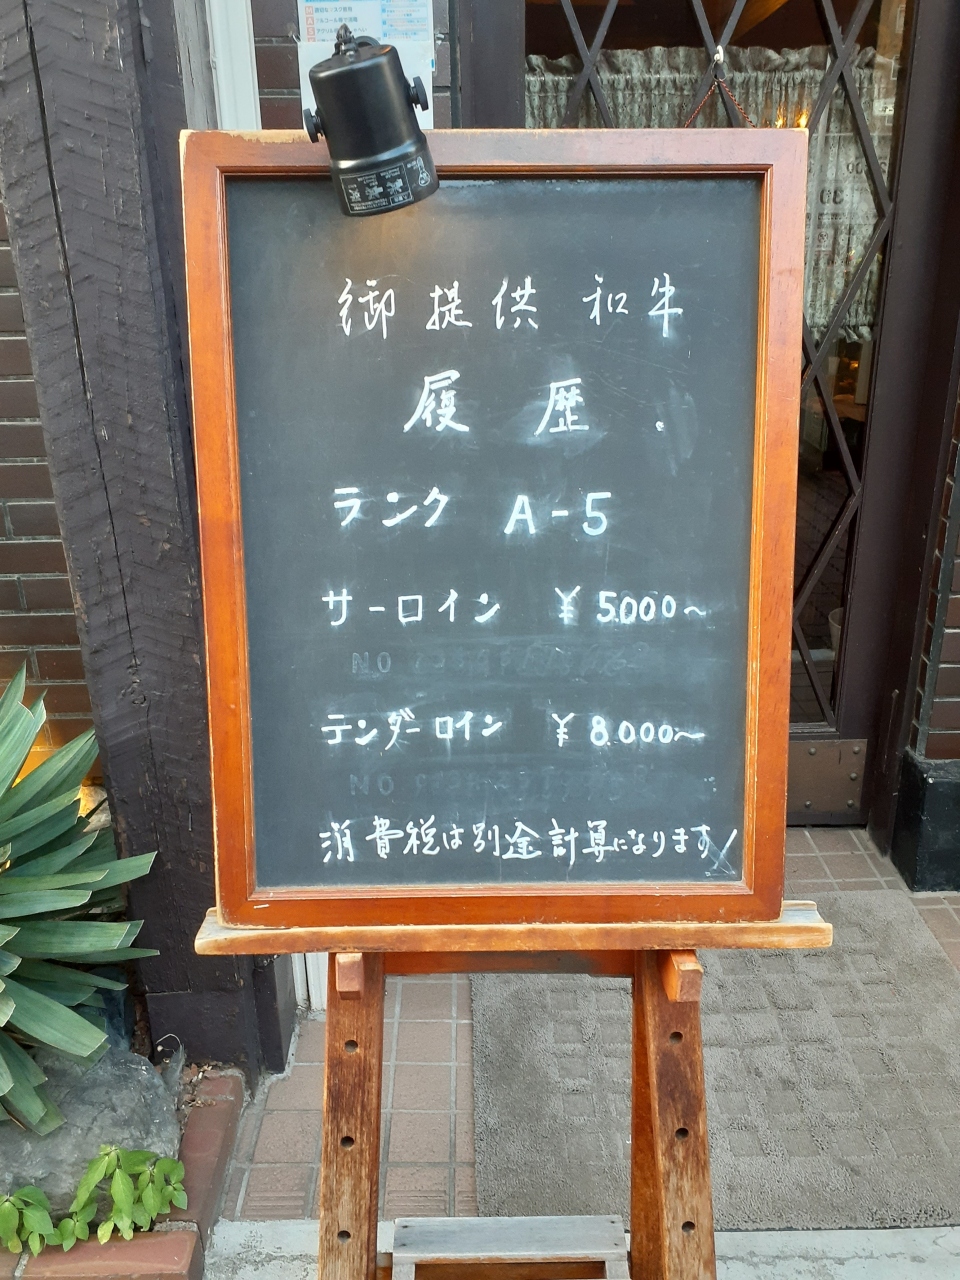 御提供 和牛
履歴.
ランク A-5
サーロイン ¥5.000〜
NO
テンダーロイン ¥8.000〜
NO
消費税は別途計算になります!